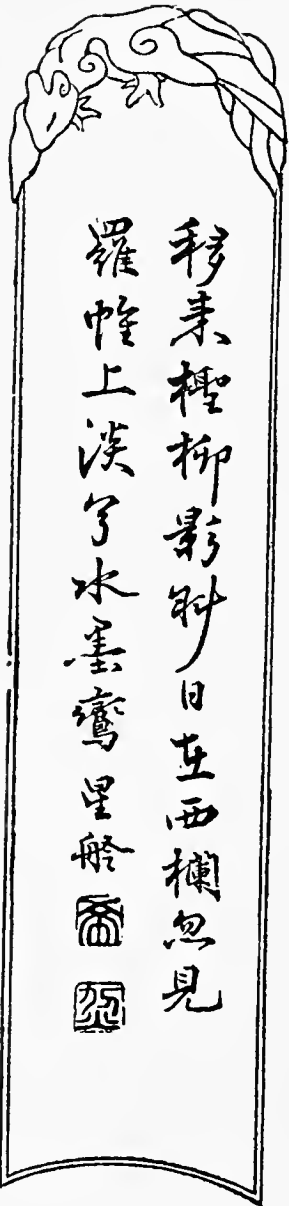 移来檉柳影斜日在西欄忽見
羅帷上淡写水墨鸞星舲